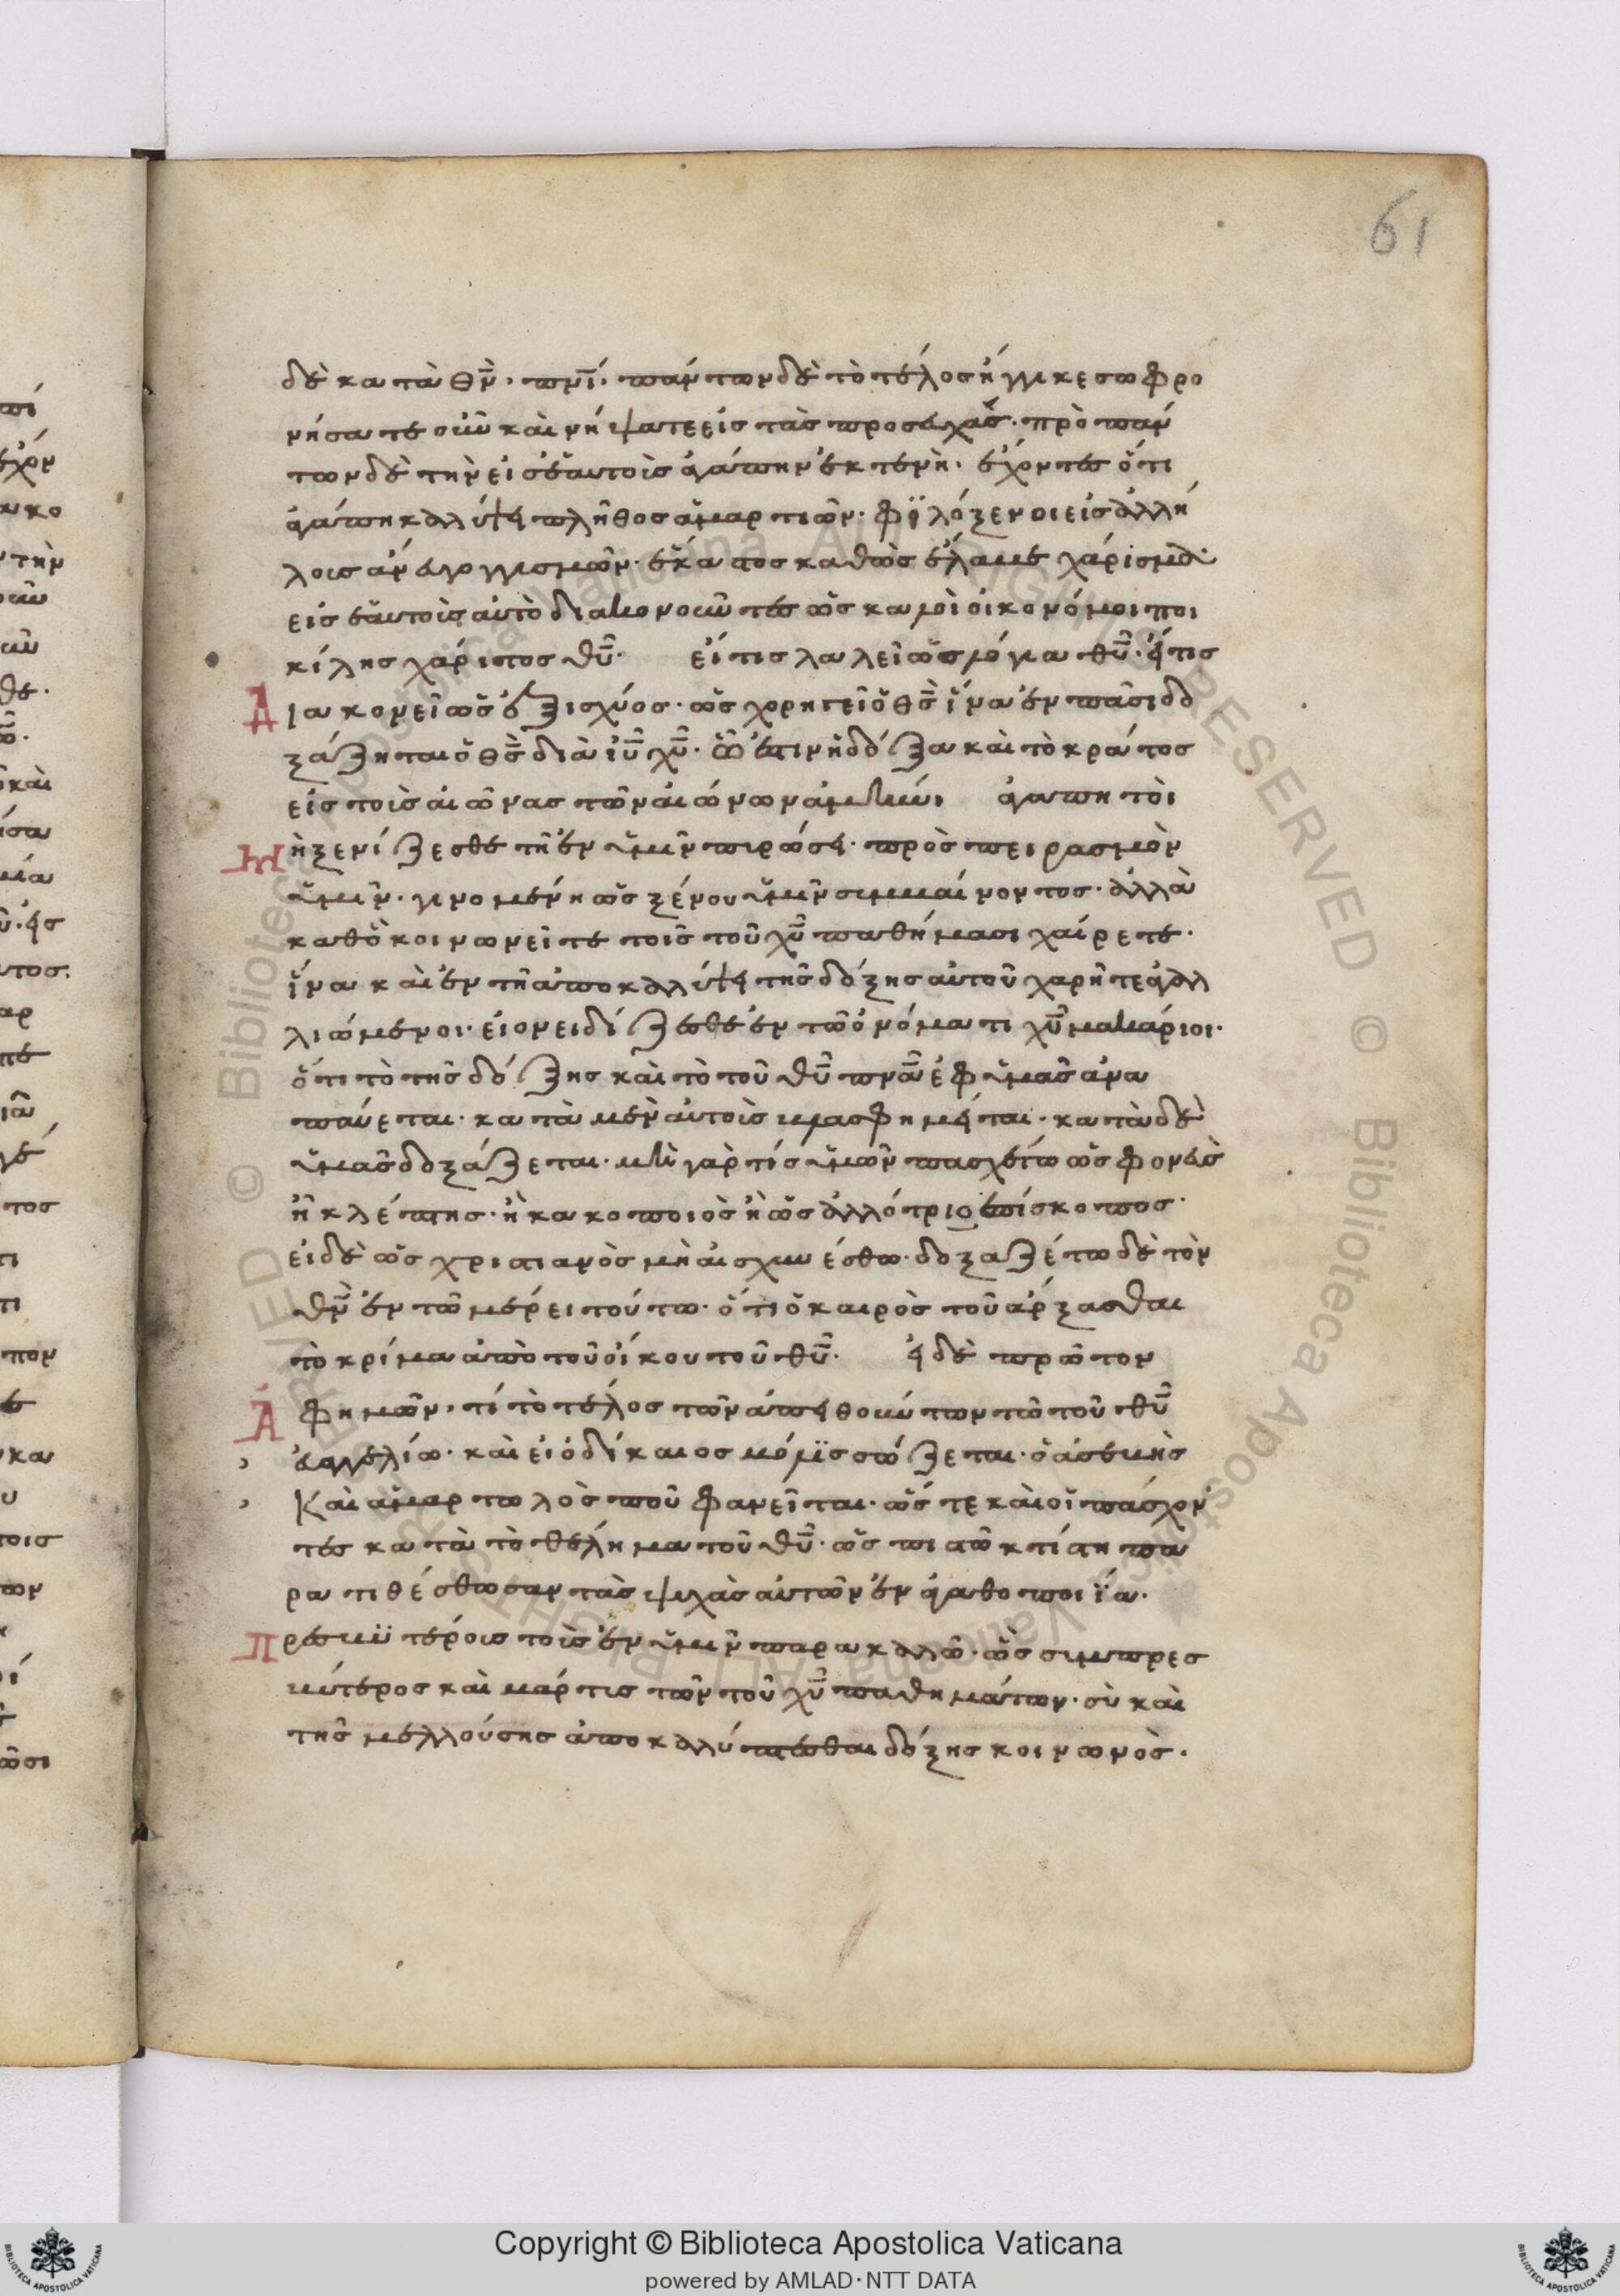 61
δὲ κατὰ θν̅, πνι̅. πάντων δὲ τὸ τέλος ἤγγικε σωφρο
νήσατε οὖν καὶ νήψατε εἰς τὰς προσευχάς. πρὸ πάν
των δὲ τὴν εἰς ἑαυτοὺς ἀγάπην ἐκτενὴ. ἔχοντες ὅτι
ἀγάπη καλύψει πλῆθος ἁμαρτιῶν. φϊλόξενοι εἰς ἀλλή
λους ἄνευ γογγυσμῶν. ἕκαστος καθὼς ἔλαβε χάρισμα
εἰς ἑαυτοὺς αὐτὸ διακονοῦντες ὡς καλοὶ οἰκονόμοι ποι
κίλης χάριτος θυ̅. εἴ τις λαλεῖ ὡς λόγια θυ̅. εἴ τις
Διακονεῖ ὡς ἐξ ισχύος. ὡς χορηγεῖ ὁ θς̅ ἵνα ἐν πᾶσι δο
ξάζηται ὁ θς̅ διὰ ιυ̅ χυ̅. ὧ ἐστιν ἡ δόξα καὶ τὸ κράτος
εἰς τοὺς αἰῶνας τῶν αἰώνων ἀμήν. ἀγαπητοὶ
Μὴ ξενίζεσθε τῆ ἐν ὑμῖν πυρώσει. πρὸς πειρασμὸν
ὑμῖν. γινομένη ὡς ξένου ὑμῖν συμβαίνοντος. ἀλλὰ
καθὸ κοινωνεῖτε τοῖς τοῦ χυ̅ παθήμασι χαίρετε.
ἵνα καὶ ἐν τῆ ἀποκαλύψει τῆς δόξης αὐτοῦ χαρῆτε ἀγαλ
λιώμενοι. εἰ ονειδίζεσθε ἐν τῶ ὀνόματι χυ̅ μακάριοι.
ὅτι τὸ τῆς δόξης καὶ τὸ τοῦ θυ̅ πνα̅ ἐφ ὑμᾶς ἀνα
παύεται. κατὰ μὲν αὐτοὺς βλασφημεῖται. κατὰ δὲ
ὑμᾶς δοξάζεται. μὴ γὰρ τίς ὑμῶν πασχέτω ὡς φονεὺς
ἢ κλέπτης. ἢ κακοποιὸς ἢ ὡς ἀλλότριο επίσκοπος.
εἰ δὲ ὡς χριστιανὸς μὴ αἰσχυνέσθω. δοξαζέτω δὲ τὸν
θν̅ ἐν τῶ μέρει τούτω. ὅτι ὁ καιρὸς τοῦ ἀρξασθαι
τὸ κρίμα ἀπὸ τοῦ οἴκου τοῦ θυ̅. εἰ δὲ πρῶτον
Ἀφ ημῶν, τί τὸ τέλος τῶν ἀπειθούντων τῶ τοῦ θυ̅
εὐαγγελίω. καὶ εἰ ὁ δίκαιος μόλϊς σώζεται. ὁ ἀσεβὴς
Καὶ ἁμαρτωλὸς ποῦ φανεῖται. ὥς τε καὶ οἱ πάσχον
τές κατὰ τὸ θέλημα τοῦ θυ̅. ὡς πιστῶ κτίστη πα
ρατιθέσθωσαν τὰς ψυχὰς αὐτῶν ἐν ἀγαθοποιΐα.
Πρεσβυτέροις τοὺς ἐν ὑμῖν παρακαλῶ. ὡς συμπρεσ
βύτερος καὶ μάρτυς τῶν τοῦ χυ̅ παθημάτων. ὁ καὶ
τῆς μελλούσης ἀποκαλύπτεσθαι δόξης κοινωνὸς.
© Biblioteca Apostolica Vaticana ALL RIGHTS RESERVED
Copyright © Biblioteca Apostolica Vaticana
powered by AMLAD·NTT DATA